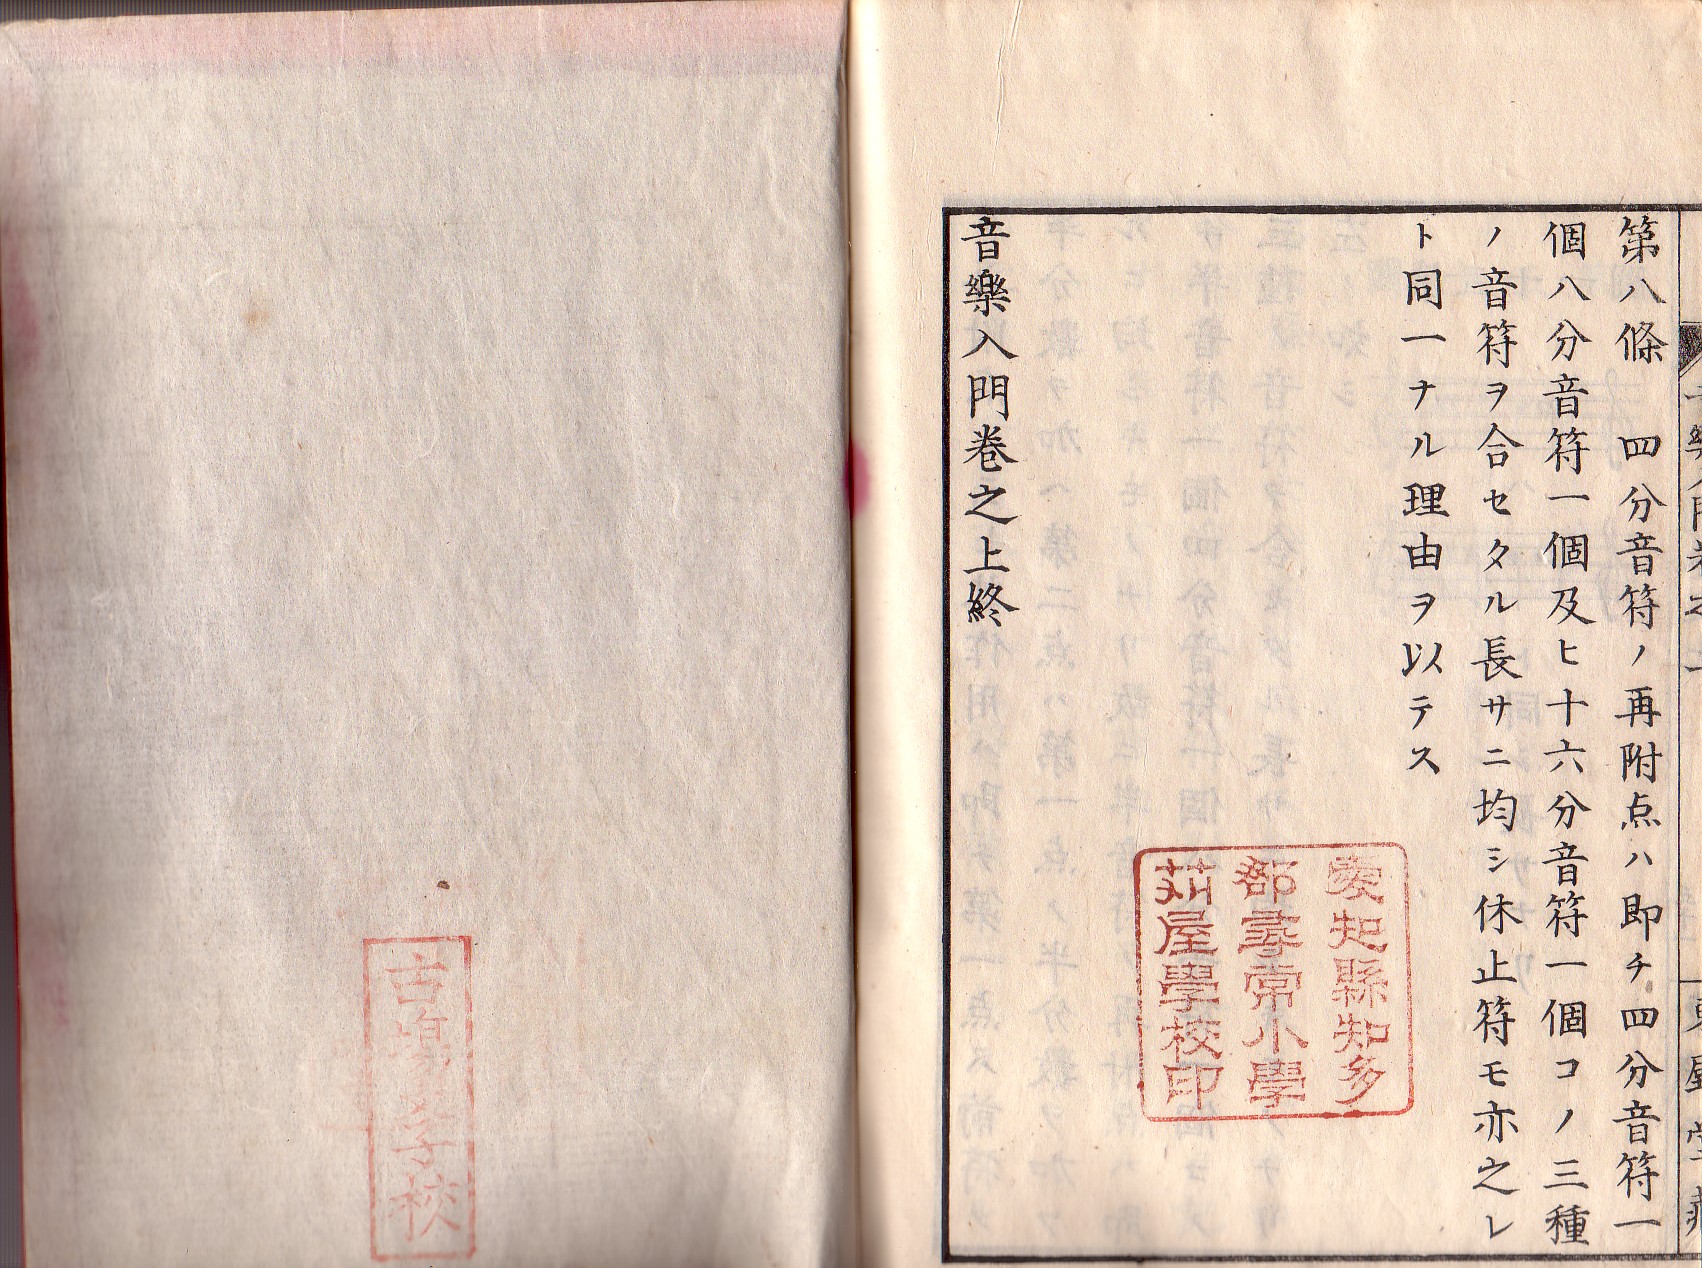 第八條　四分音符ノ再附点ハ即チ四分音符一
個八分音符一個及ヒ十六分音符一個コノ三種
ノ音符ヲ合セタル長サニ均シ休止符モ亦之レ
ト同一ナル理由ヲ以テス
音樂入門卷之上終
愛知縣知多
郡尋常小學
苅屋學校印
古場學校